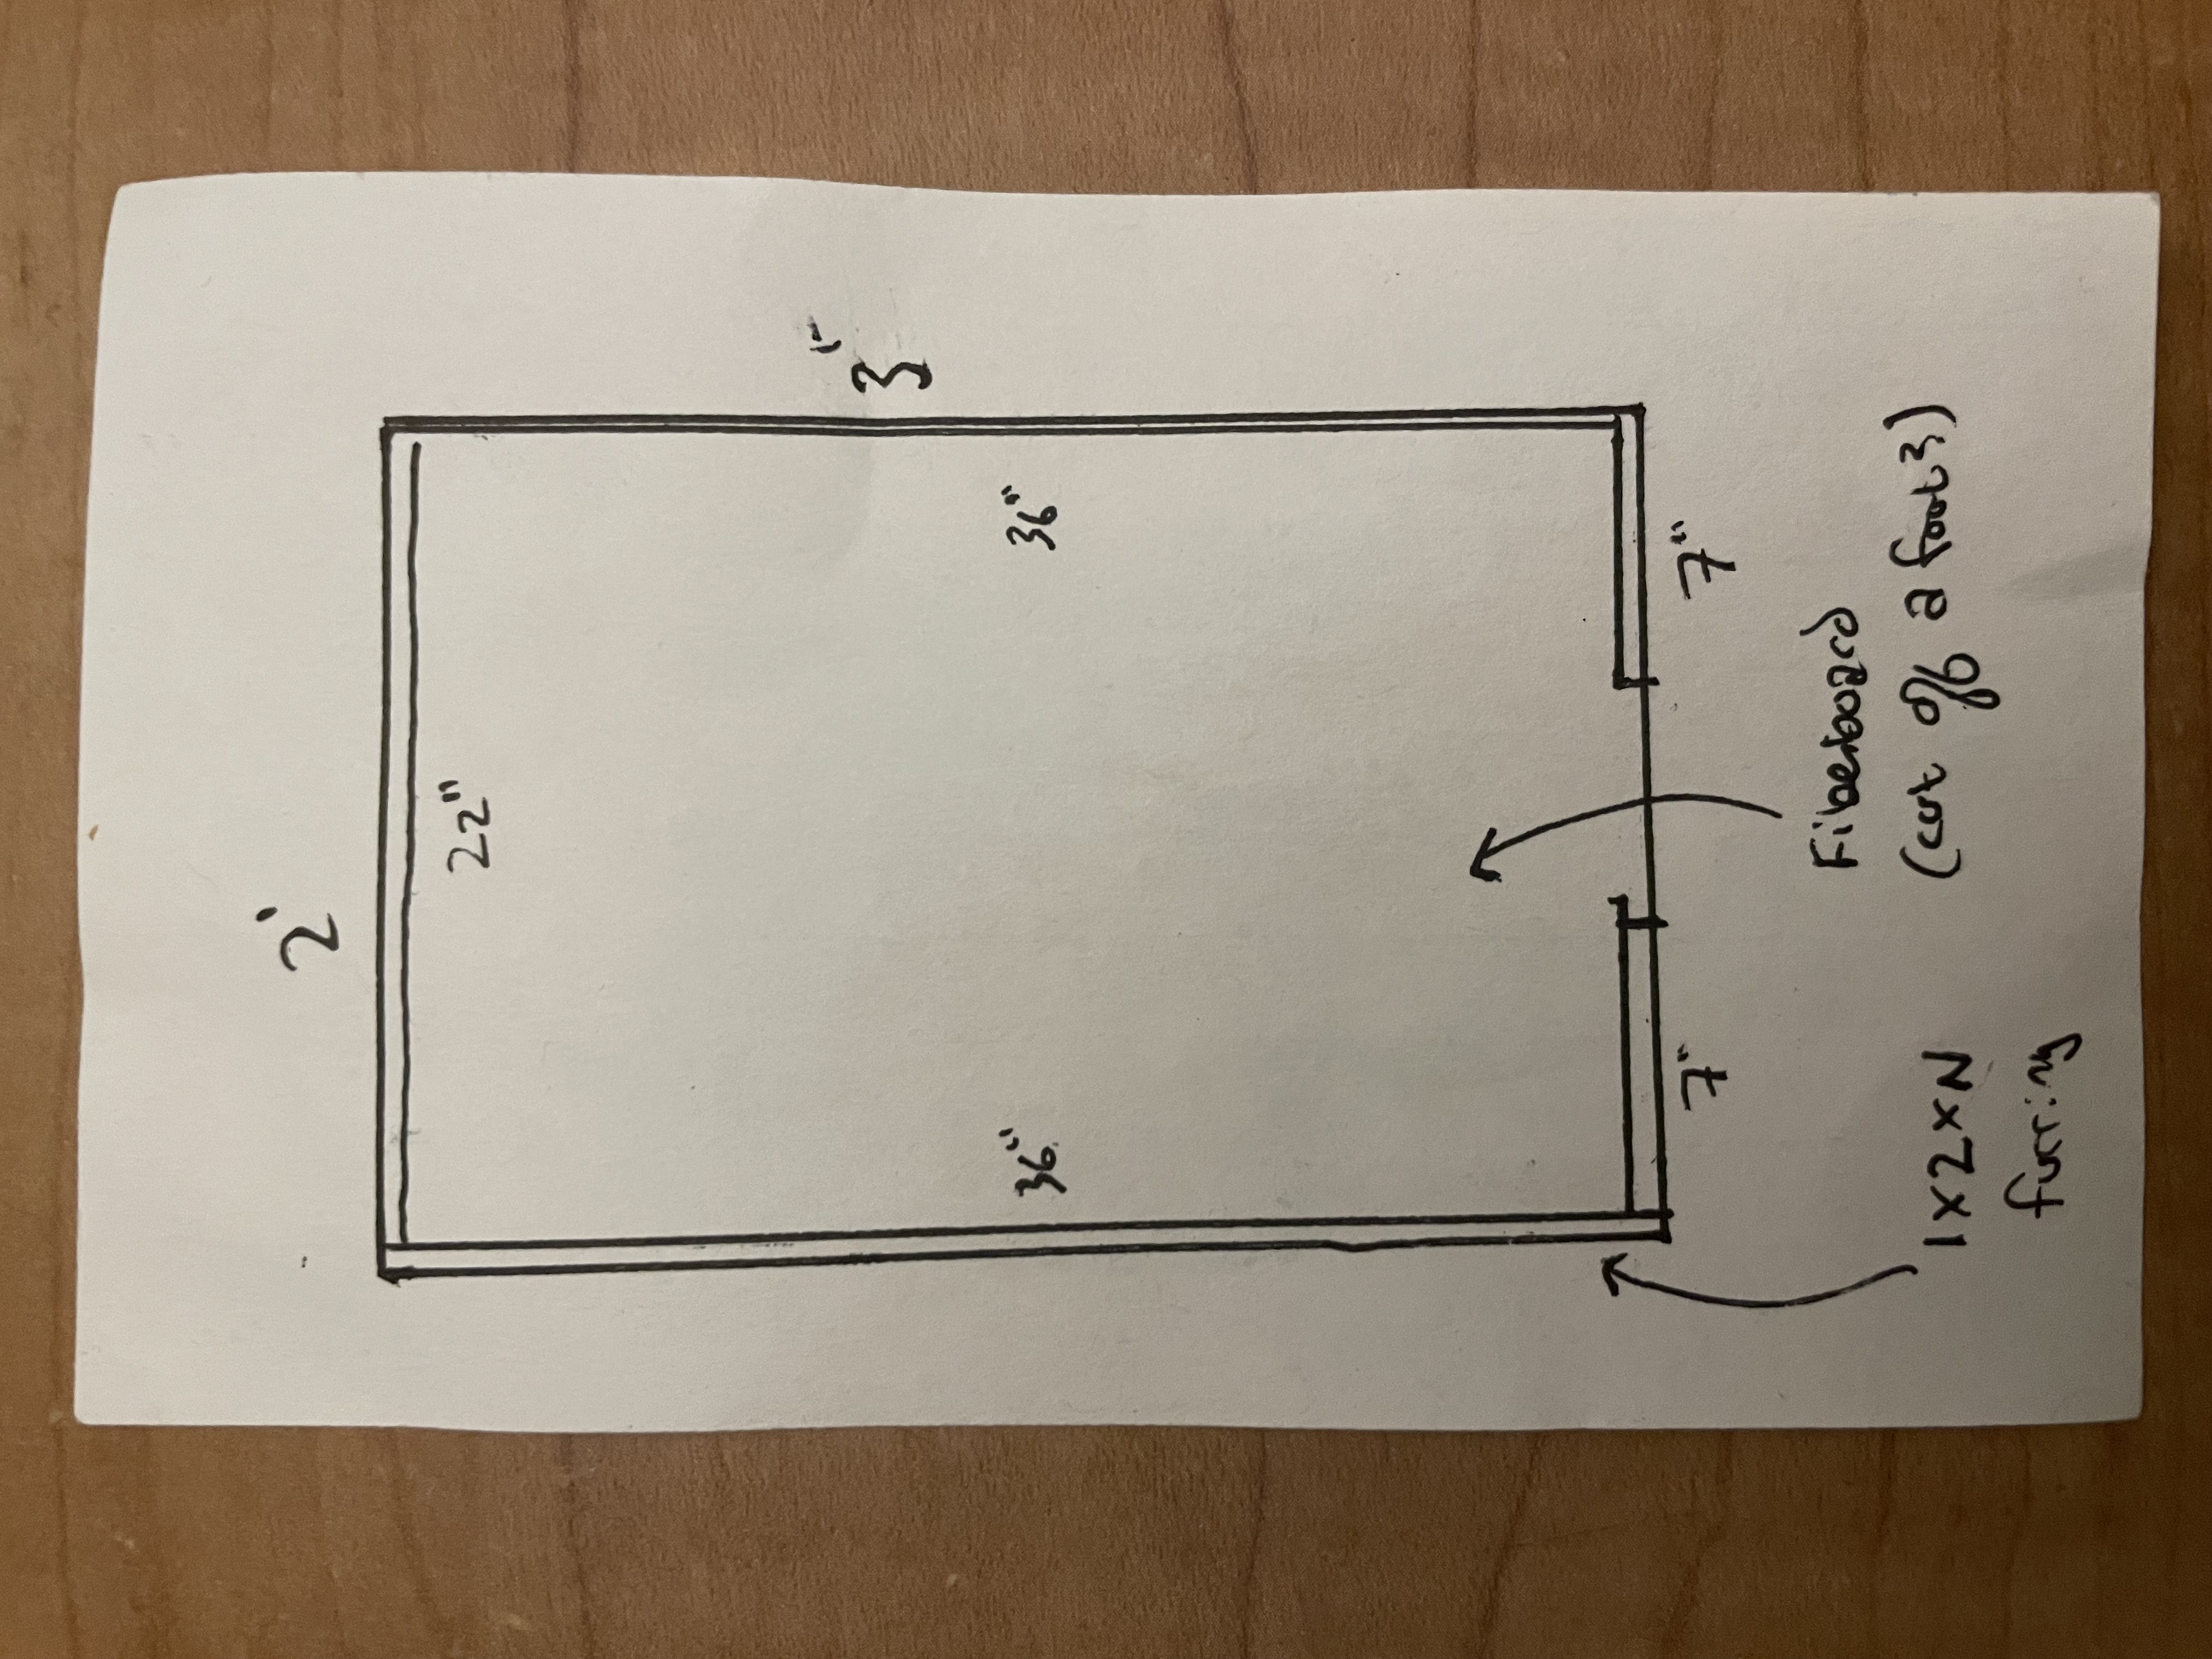 2'
22"
3'
36"
36"
7"
7"
Fiberboard
(cut off a foot?)
1x2xN
furring